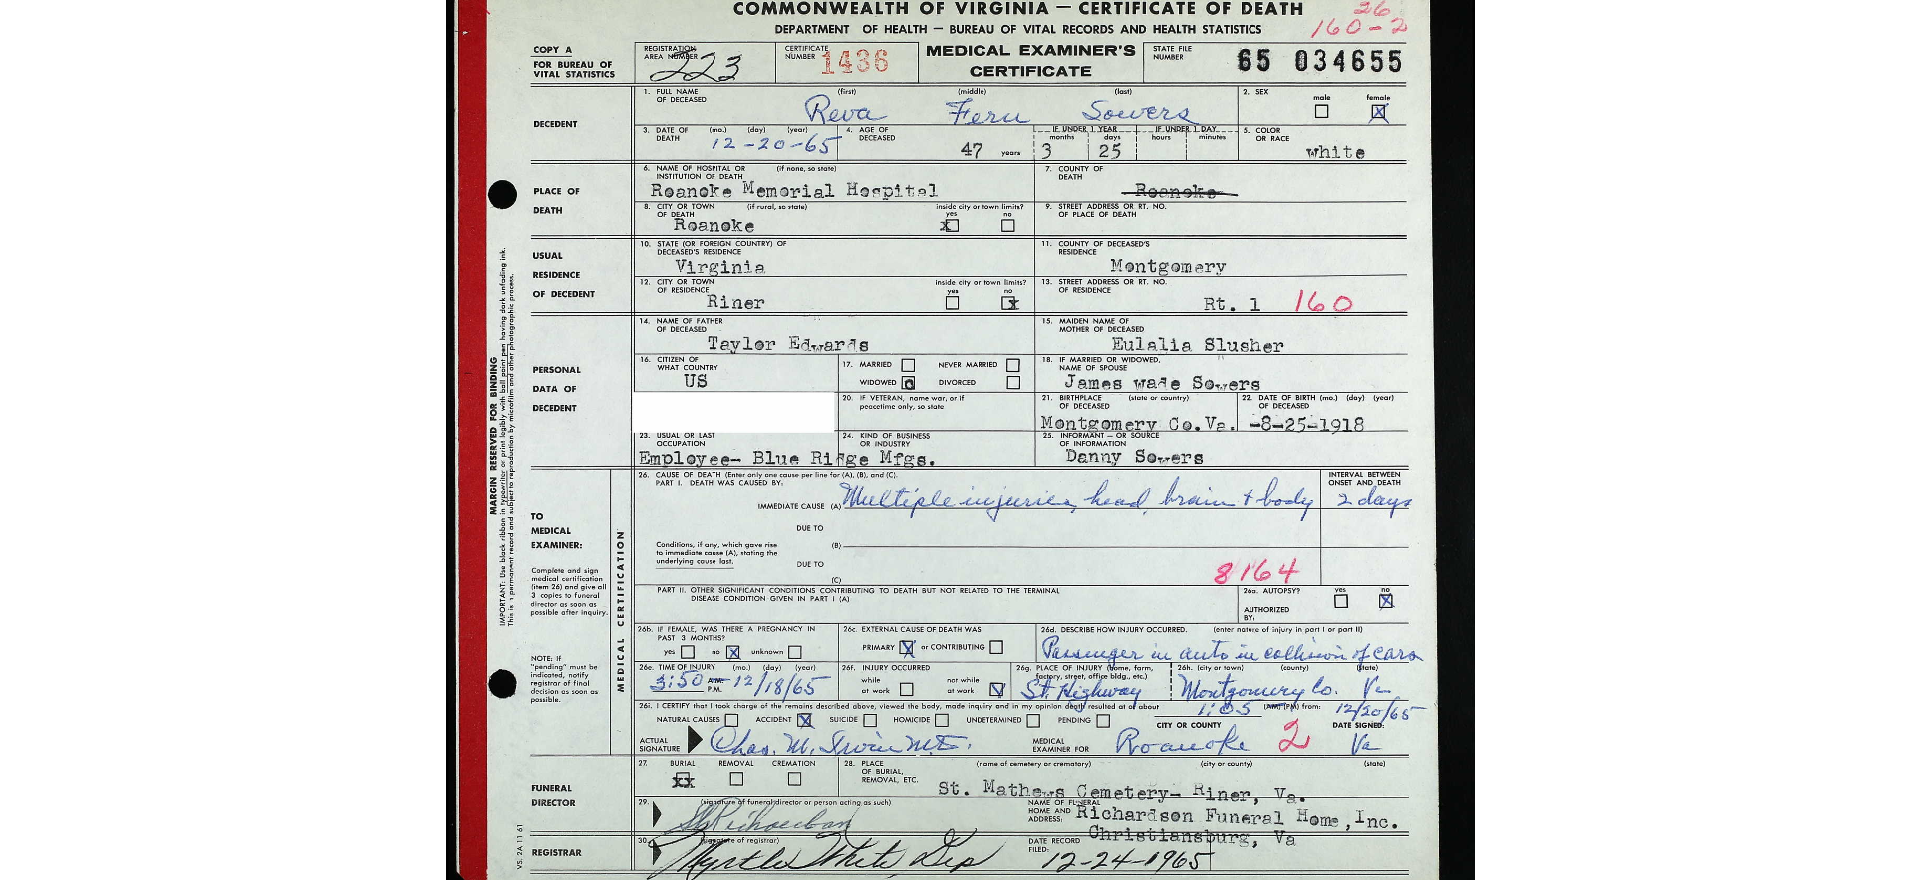 COMMONWEALTH OF VIRGINIA — CERTIFICATE OF DEATH
26
DEPARTMENT OF HEALTH — BUREAU OF VITAL RECORDS AND HEALTH STATISTICS
160-2
COPY A
FOR BUREAU OF
VITAL STATISTICS
REGISTRATION
AREA NUMBER
223
CERTIFICATE
NUMBER
1436
MEDICAL EXAMINER'S
CERTIFICATE
STATE FILE
NUMBER
65 034655
DECEDENT
1. FULL NAME
OF DECEASED
(first) (middle) (last)
Reva Fern Sowers
2. SEX
male female
X
3. DATE OF
DEATH
(mo.) (day) (year)
12-20-65
4. AGE OF
DECEASED
47 years
IF UNDER 1 YEAR
months days
3 25
IF UNDER 1 DAY
hours minutes
5. COLOR
OR RACE
white
PLACE OF
DEATH
6. NAME OF HOSPITAL OR (if none, so state)
INSTITUTION OF DEATH
Roanoke Memorial Hospital
7. COUNTY OF
DEATH
Roanoke
8. CITY OR TOWN (if rural, so state)
OF DEATH
Roanoke
inside city or town limits?
yes no
x
9. STREET ADDRESS OR RT. NO.
OF PLACE OF DEATH
USUAL
RESIDENCE
OF DECEDENT
10. STATE (OR FOREIGN COUNTRY) OF
DECEASED'S RESIDENCE
Virginia
11. COUNTY OF DECEASED'S
RESIDENCE
Montgomery
12. CITY OR TOWN
OF RESIDENCE
Riner
inside city or town limits?
yes no
x
13. STREET ADDRESS OR RT. NO.
OF RESIDENCE
Rt. 1 160
PERSONAL
DATA OF
DECEDENT
14. NAME OF FATHER
OF DECEASED
Taylor Edwards
15. MAIDEN NAME OF
MOTHER OF DECEASED
Eulalia Slusher
16. CITIZEN OF
WHAT COUNTRY
US
17. MARRIED NEVER MARRIED
WIDOWED DIVORCED
18. IF MARRIED OR WIDOWED,
NAME OF SPOUSE
James wade Sowers
20. IF VETERAN, name war, or if
peacetime only, so state
21. BIRTHPLACE (state or country)
OF DECEASED
Montgomery Co.Va.
22. DATE OF BIRTH (mo.) (day) (year)
OF DECEASED
-8-25-1918
23. USUAL OR LAST
OCCUPATION
Employee- Blue Ridge Mfgs.
24. KIND OF BUSINESS
OR INDUSTRY
25. INFORMANT — OR SOURCE
OF INFORMATION
Danny Sowers
MARGIN RESERVED FOR BINDING
IMPORTANT: Use black ribbon in typewriter or print legibly with ball point pen having dark unfading ink.
This is a permanent record and subject to reproduction by microfilm and other photographic process.
TO
MEDICAL
EXAMINER:
Complete and sign
medical certification
(item 26) and give all
3 copies to funeral
director as soon as
possible after inquiry.
NOTE: If
"pending" must be
indicated, notify
registrar of final
decision as soon as
possible.
MEDICAL CERTIFICATION
26. CAUSE OF DEATH (Enter only one cause per line for (A), (B), and (C).
PART I. DEATH WAS CAUSED BY:
IMMEDIATE CAUSE (A) Multiple injuries, head, brain + body
INTERVAL BETWEEN
ONSET AND DEATH
2 days
DUE TO
Conditions, if any, which gave rise
to immediate cause (A), stating the
underlying cause last.
(B)
DUE TO
(C)
8164
PART II. OTHER SIGNIFICANT CONDITIONS CONTRIBUTING TO DEATH BUT NOT RELATED TO THE TERMINAL
DISEASE CONDITION GIVEN IN PART I (A)
26a. AUTOPSY?
yes no
X
AUTHORIZED
BY:
26b. IF FEMALE, WAS THERE A PREGNANCY IN
PAST 3 MONTHS?
yes no X unknown
26c. EXTERNAL CAUSE OF DEATH WAS
PRIMARY X or CONTRIBUTING
26d. DESCRIBE HOW INJURY OCCURRED. (enter nature of injury in part I or part II)
Passenger in auto in collision of cars
26e. TIME OF INJURY (mo.) (day) (year)
3:50 A.M. P.M. 12/18/65
26f. INJURY OCCURRED
while at work
not while at work
26g. PLACE OF INJURY (home, farm,
factory, street, office bldg., etc.)
St. Highway
26h. (city or town) (county) (state)
Montgomery Co. Va.
26i. I CERTIFY that I took charge of the remains described above, viewed the body, made inquiry and in my opinion death resulted at or about 1:05 (AM) (PM) from: 12/20/65
NATURAL CAUSES ACCIDENT X SUICIDE HOMICIDE UNDETERMINED PENDING
CITY OR COUNTY
DATE SIGNED:
ACTUAL
SIGNATURE
Chas. M. Irvin M.D.
MEDICAL
EXAMINER FOR
Roanoke 2 Va
FUNERAL
DIRECTOR
27. BURIAL REMOVAL CREMATION
xx
28. PLACE
OF BURIAL,
REMOVAL, ETC.
(name of cemetery or crematory) (city or county) (state)
St. Mathews Cemetery- Riner, Va.
29. (signature of funeral director or person acting as such)
NAME OF FUNERAL
HOME AND
ADDRESS:
Richardson Funeral Home,Inc.
Christiansburg, Va
REGISTRAR
30. (signature of registrar)
Myrtle White, Dep
DATE RECORD
FILED:
12-24-1965
VS. 2A 11 61